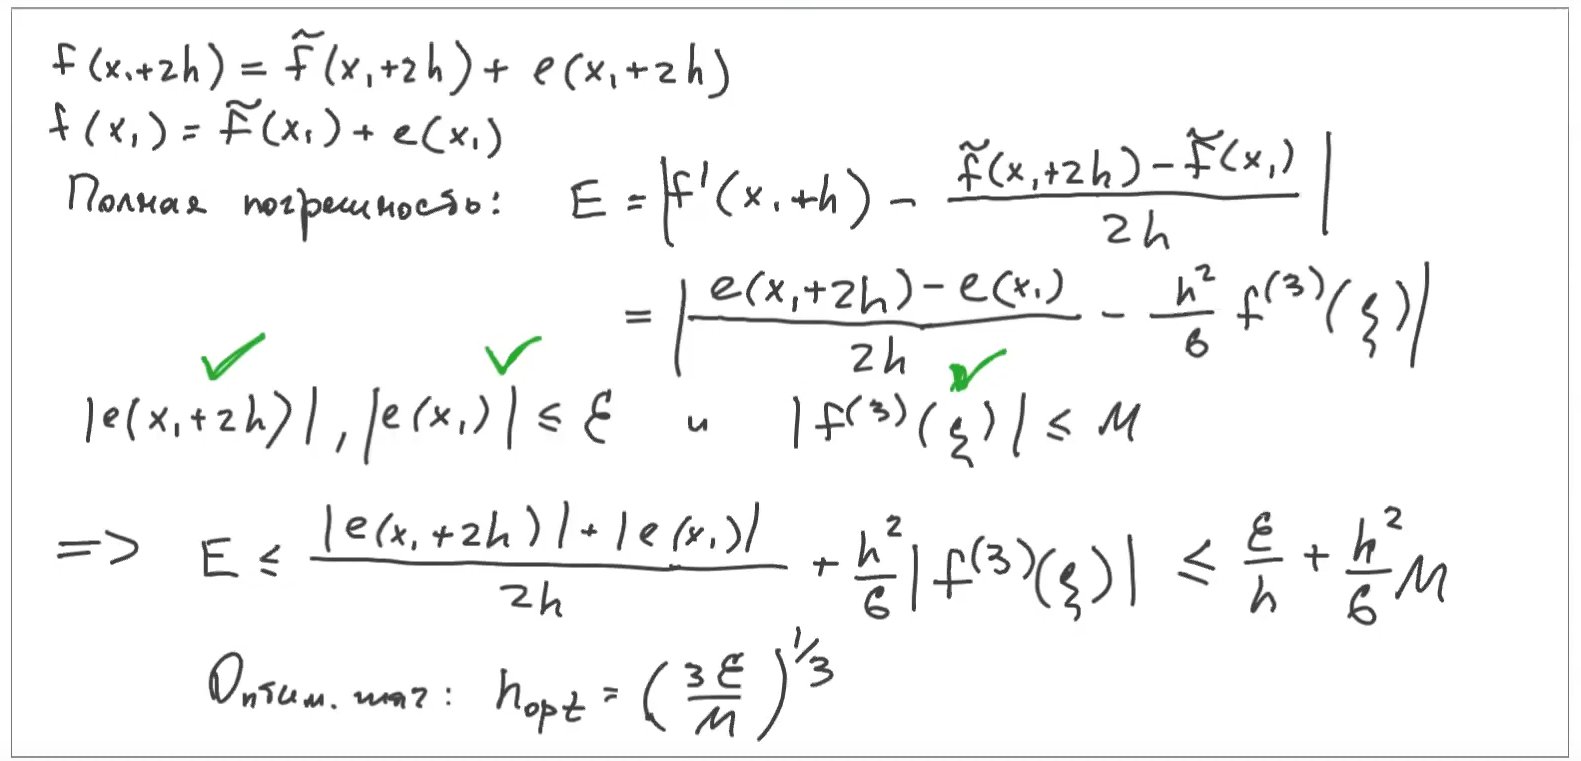 f(x₁+2h) = f̃(x₁+2h) + e(x₁+2h)
f(x₁) = f̃(x₁) + e(x₁)
Полная погрешность: E = |f'(x₁+h) - (f̃(x₁+2h) - f̃(x₁))/(2h)|
= |(e(x₁+2h) - e(x₁))/(2h) - h²/6 f⁽³⁾(ξ)|
|e(x₁+2h)|, |e(x₁)| ≤ ℰ и |f⁽³⁾(ξ)| ≤ M
=> E ≤ (|e(x₁+2h)| + |e(x₁)|)/(2h) + h²/6 |f⁽³⁾(ξ)| ≤ ℰ/h + h²/6 M
Оптим. шаг: h_opt = (3ℰ/M)^{1/3}